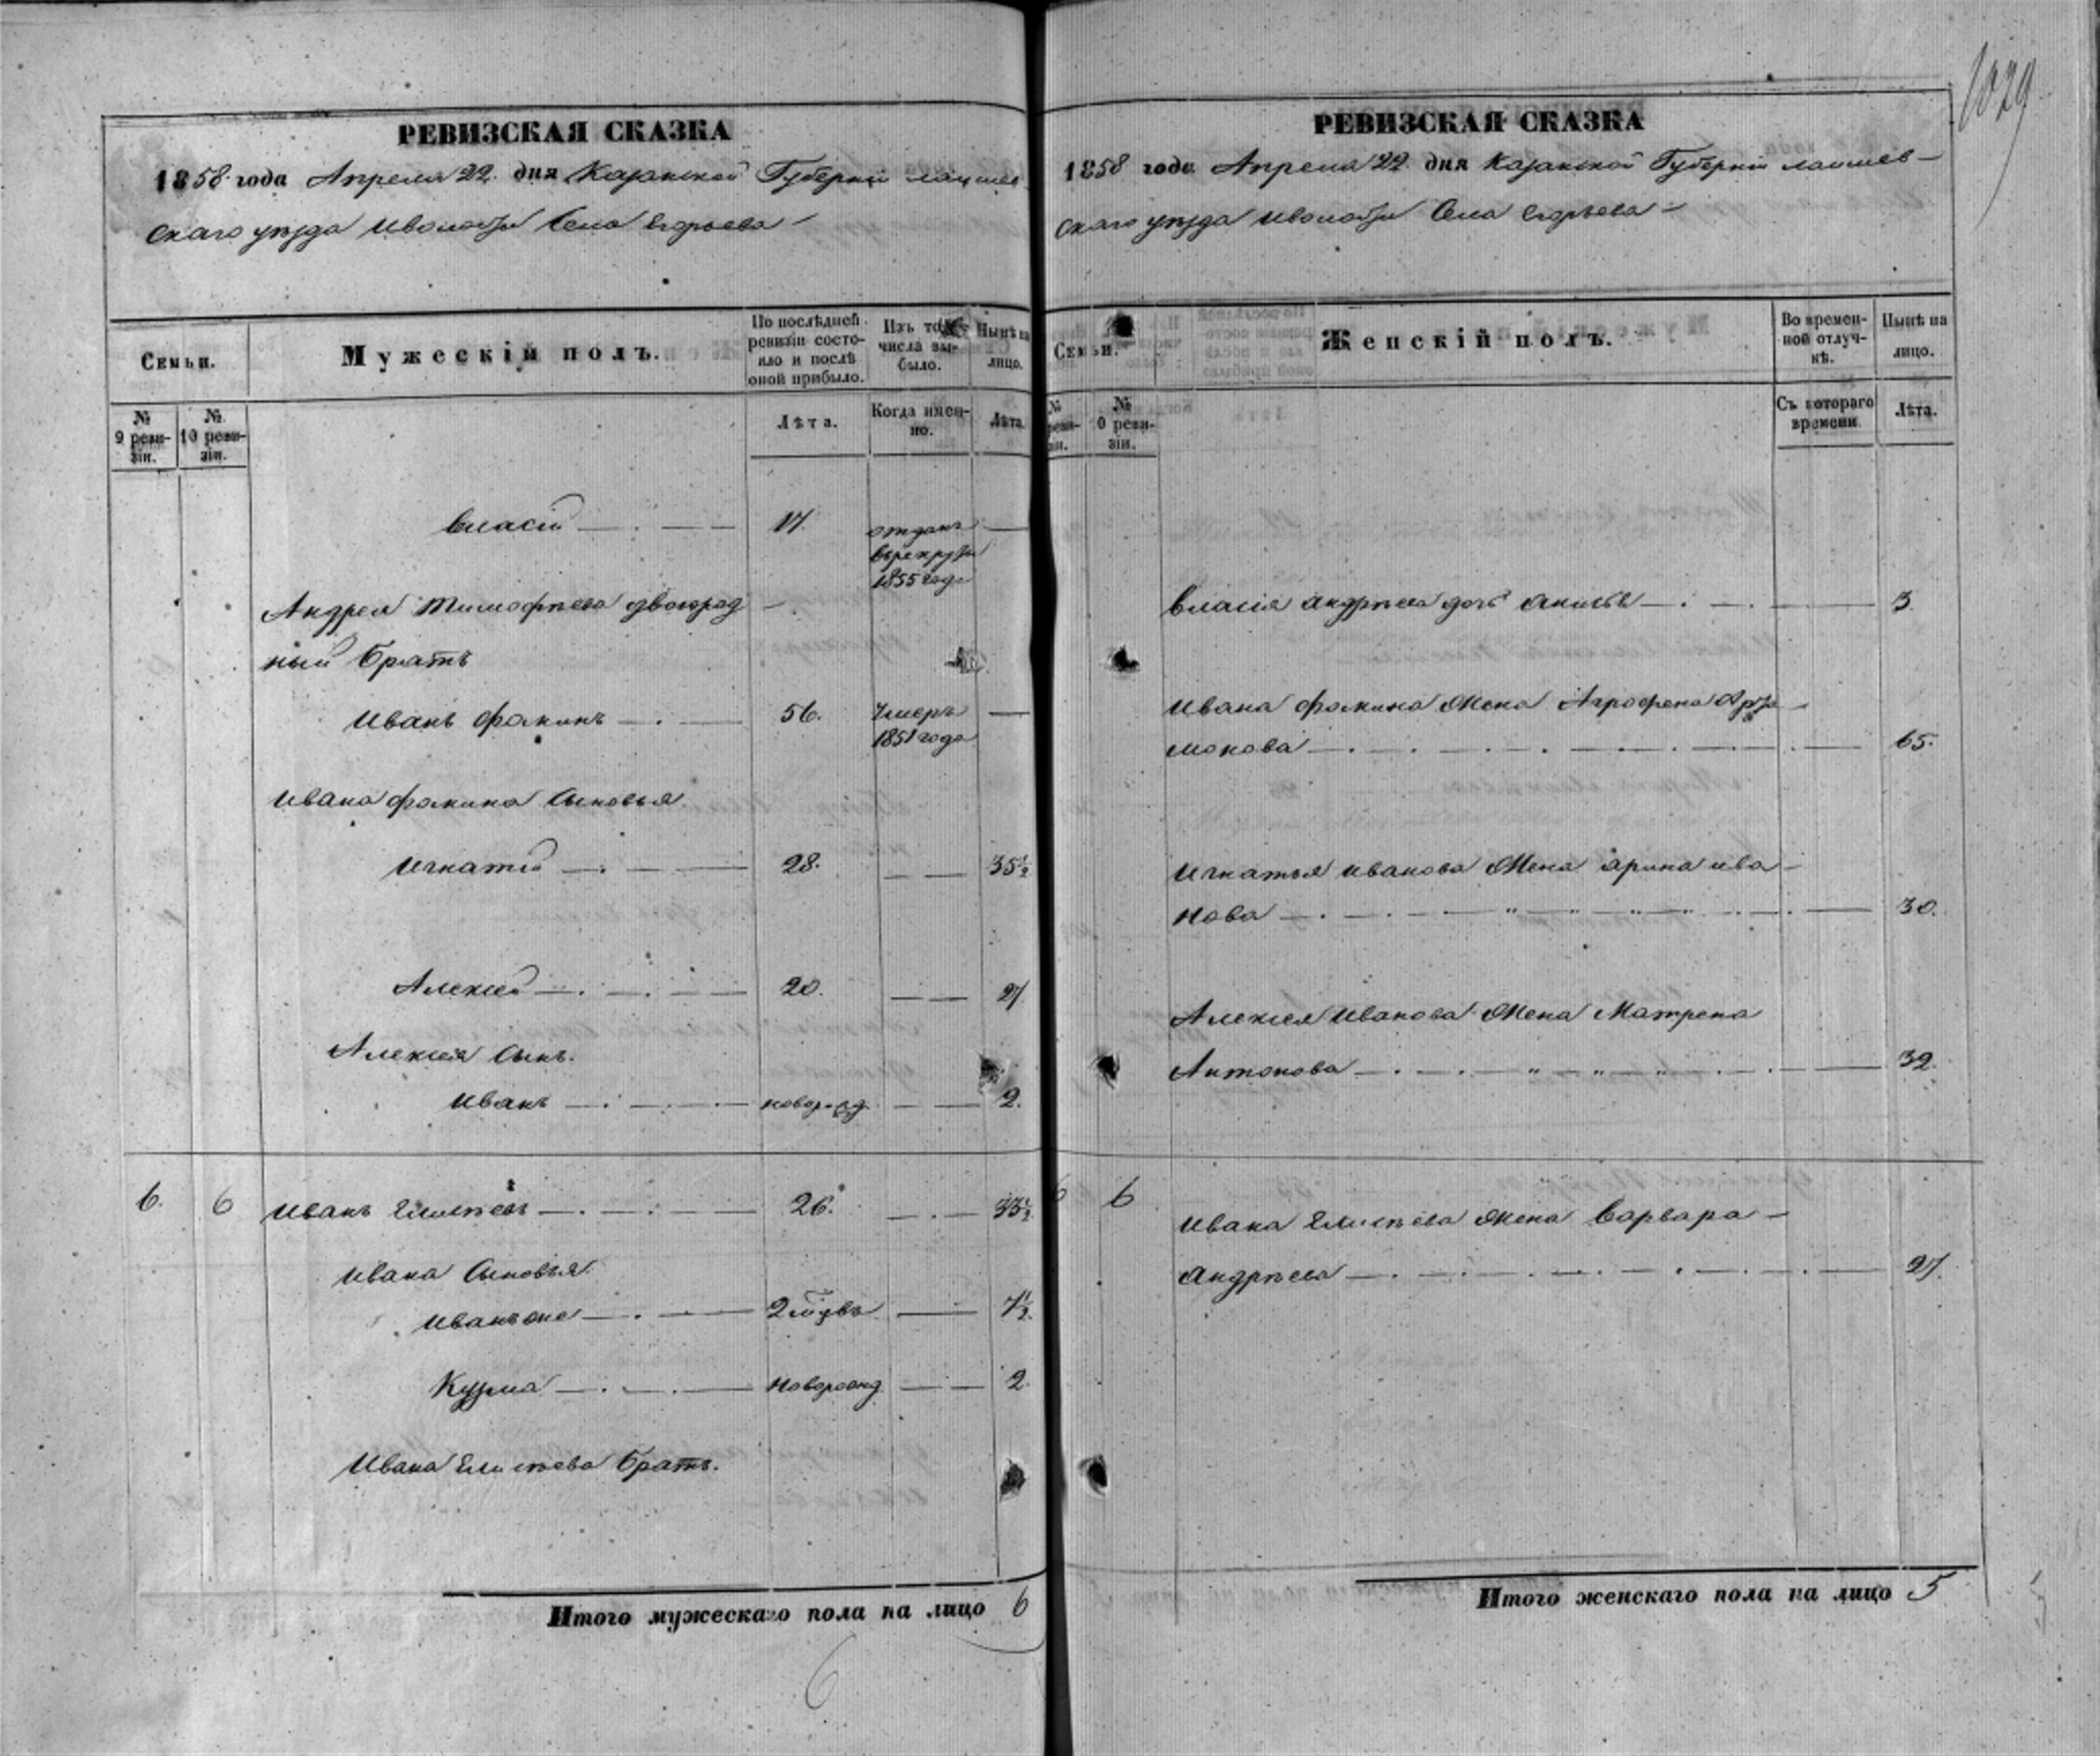 1029
РЕВИЗСКАЯ СКАЗКА
1858 года Апреля 22 дня Казанской Губерніи лаишев
скаго уѣзда Села Егорьева
Семьи.
Мужескій полъ.
По послѣдней ревизіи состо-
яло и послѣ
оной прибыло.
Изъ того
числа вы-
было.
Нынѣ на
лицо.
№
9 реви-
зіи.
№
10 реви-
зіи.
Лѣта.
Когда имен-
но.
Лѣта.
Власій 17. отданъ
в рекруты
1855 года
Андрея Тимофѣева двоюрод
ный братъ
Иванъ Фоминъ 56. Умеръ
1851 года
Ивана Фомина Сыновья
Игнатій 28. 35½
Алексей 20. 27
Алексея Сынъ.
Иванъ новорожд. 2.
6. 6 Иванъ Елисѣевъ 26. 33½
Ивана Сыновья
Иванъ 7½
Кузма новорожд 2
Ивана Елисѣева Братъ.
Итого мужескаго пола на лицо 6
6
РЕВИЗСКАЯ СКАЗКА
1858 года Апреля 22 дня Казанской Губерніи лаишев
скаго уѣзда Села Егорьева
Семьи.
Женскій полъ.
Во времен-
ной отлуч-
кѣ.
Нынѣ на
лицо.
№
реви-
зіи.
№
0 реви-
зіи.
Съ котораго
времени.
Лѣта.
Власія Андрѣева дочь 3
Ивана Фомина Жена Агрофена Арта
монова 65.
Игнатья Иванова Жена Арина Ива
нова 30.
Алексея Иванова Жена Матрена
Антонова 32.
6 6 Ивана Елисѣева Жена Варвара
Андрѣева 27.
Итого женскаго пола на лицо 5